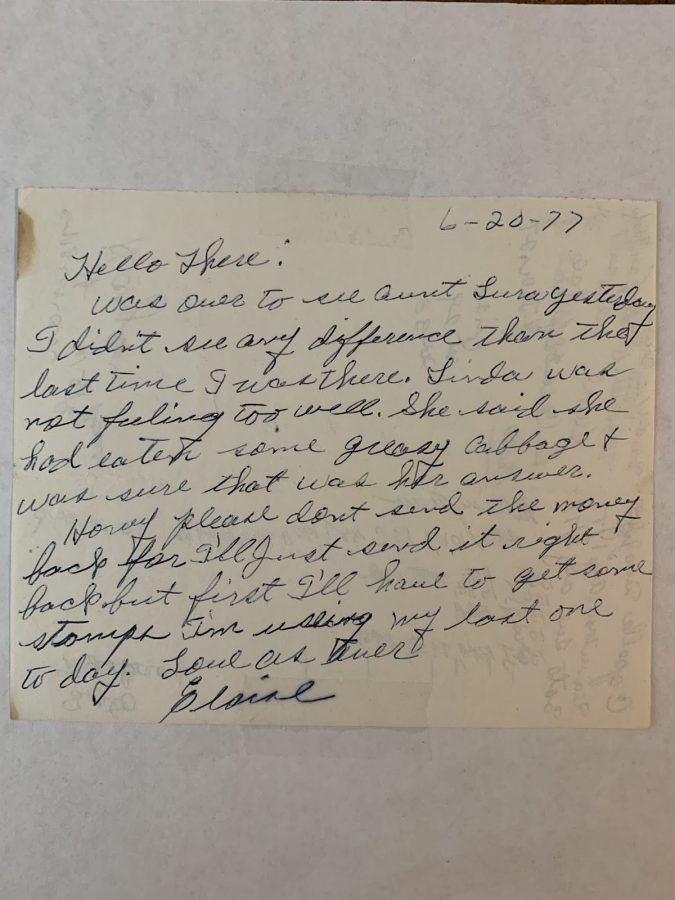 6-20-77
Hello There:
was over to see aunt Lura yesterday
I didn't see any difference than the
last time I was there. Linda was
not feeling too well. She said she
had eaten some greasy cabbage &
was sure that was her answer.
Honey please dont send the money
back for I'll Just send it right
back but first I'll have to get some
stamps I'm using my last one
to day. Love as Ever
Eloise